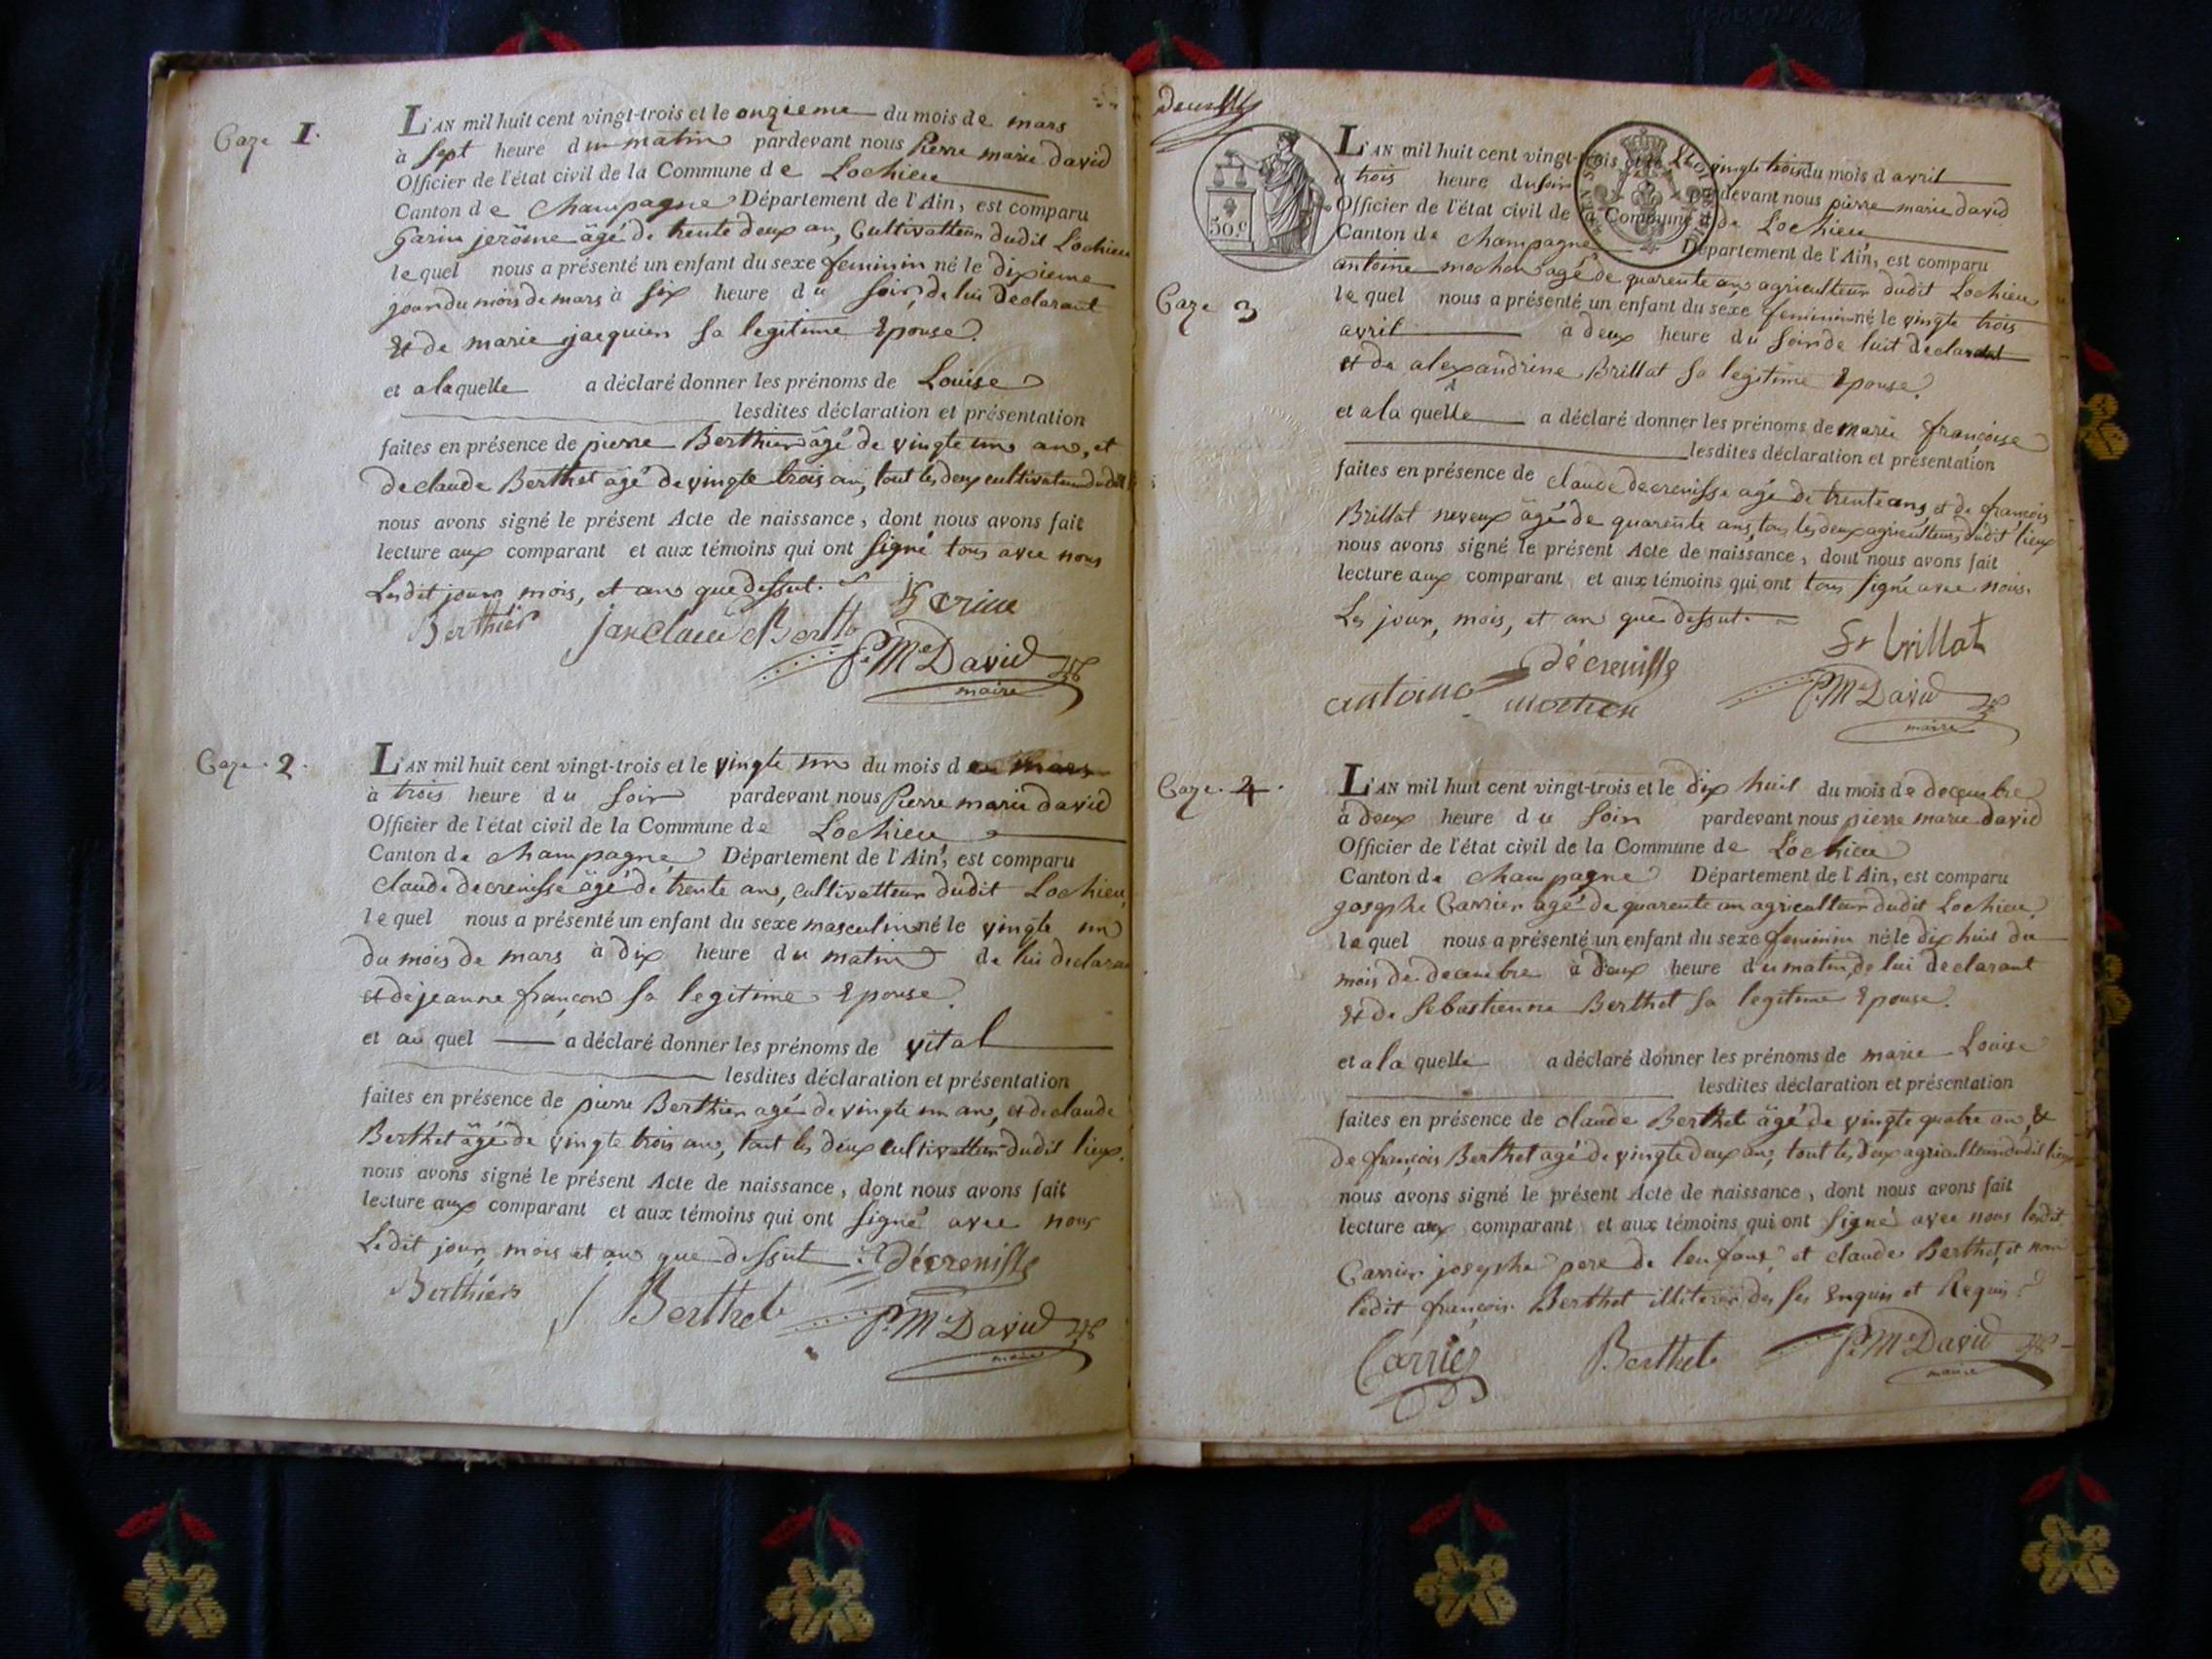 Caze 1.
L'AN mil huit cent vingt-trois et le onzieme du mois de mars
à sept heure du matin pardevant nous Pierre marie david
Officier de l'état civil de la Commune de Lochieu
Canton de Champagne Département de l'Ain, est comparu
Garin jerôme âgé de trente deux an, Cultivatteur dudit Lochieu
le quel nous a présenté un enfant du sexe feminin né le dixieme
jour du mois de mars à six heure du soir, de lui declarant
Et de marie jacquien sa legitime Epouse.
et a laquelle a déclaré donner les prénoms de Louise
lesdites déclaration et présentation
faites en présence de pierre Berthier âgé de vingte un an, et
de claude Berthet âgé de vingte trois an, tout les deux cultivateur dudit
nous avons signé le présent Acte de naissance, dont nous avons fait
lecture aux comparant et aux témoins qui ont signé tous avec nous
Lesdit jour, mois, et an que dessut.
Berthier
P. M David
maire
Caze. 2.
L'AN mil huit cent vingt-trois et le vingte un du mois de mars
à trois heure du soir pardevant nous Pierre marie david
Officier de l'état civil de la Commune de Lochieu
Canton de Champagne Département de l'Ain, est comparu
Claude decrenisse âgé de trente an, cultivatteur dudit Lochieu,
le quel nous a présenté un enfant du sexe masculin né le vingte un
du mois de mars à dix heure du matin de lui declarant
et de jeanne françon sa legitime Epouse.
et au quel a déclaré donner les prénoms de vital
lesdites déclaration et présentation
faites en présence de pierre Berthier agé de vingte un an, et de claude
Berthet âgé de vingte trois an, tout les deux cultivatteur dudit lieux.
nous avons signé le présent Acte de naissance, dont nous avons fait
lecture aux comparant et aux témoins qui ont signé avec nous
Ledit jour, mois et an que dessut
décrenisse
Berthier
Berthet
P. M David
maire
50.c
L'AN mil huit cent vingt-trois et le vingte trois du mois d avril
à trois heure du soir pardevant nous pierre marie david
Officier de l'état civil de la Commune de Lochieu
Canton de Champagne Département de l'Ain, est comparu
Caze 3
antoine mochon agé de quarente an agriculteur dudit Lochieu
le quel nous a présenté un enfant du sexe feminin né le vingte trois
avril à deux heure du soir de luit declarant
et de alexandrine Brillat sa legitime Epouse.
et a la quelle a déclaré donner les prénoms de marie françoise
lesdites déclaration et présentation
faites en présence de claude decrenisse agé de trente ans, et de françois
Brillat neveux âgé de quarente ans, tous les deux agriculteurs dudit lieux
nous avons signé le présent Acte de naissance, dont nous avons fait
lecture aux comparant et aux témoins qui ont tous signé avec nous.
Les jour, mois, et an que dessut.
décrenisse
fr brillat
antoine mochon
P. M David
maire
Caze. 4.
L'AN mil huit cent vingt-trois et le dix huit du mois de decembre
à deux heure du soir pardevant nous pierre marie david
Officier de l'état civil de la Commune de Lochieu
Canton de Champagne Département de l'Ain, est comparu
josephe Carrier agé de quarente an agriculteur dudit Lochieu,
le quel nous a présenté un enfant du sexe feminin né le dix huit du
mois de decembre à deux heure du matin, de lui declarant
Et de Sebastienne Berthet sa legitime Epouse.
et a la quelle a déclaré donner les prénoms de marie Louise
lesdites déclaration et présentation
faites en présence de claude Berthet âgé de vingte quatre an, &
de françois Berthet agé de vingte deux an, tout les deux agriculteur dudit lieux
nous avons signé le présent Acte de naissance, dont nous avons fait
lecture aux comparant et aux témoins qui ont signé avec nous lesdit
Carrier josephe pere de lenfant, et claude Berthet, et non
ledit françois Berthet illiteré de ses Enquis et Requis
Carrier
Berthet
P. M David
maire